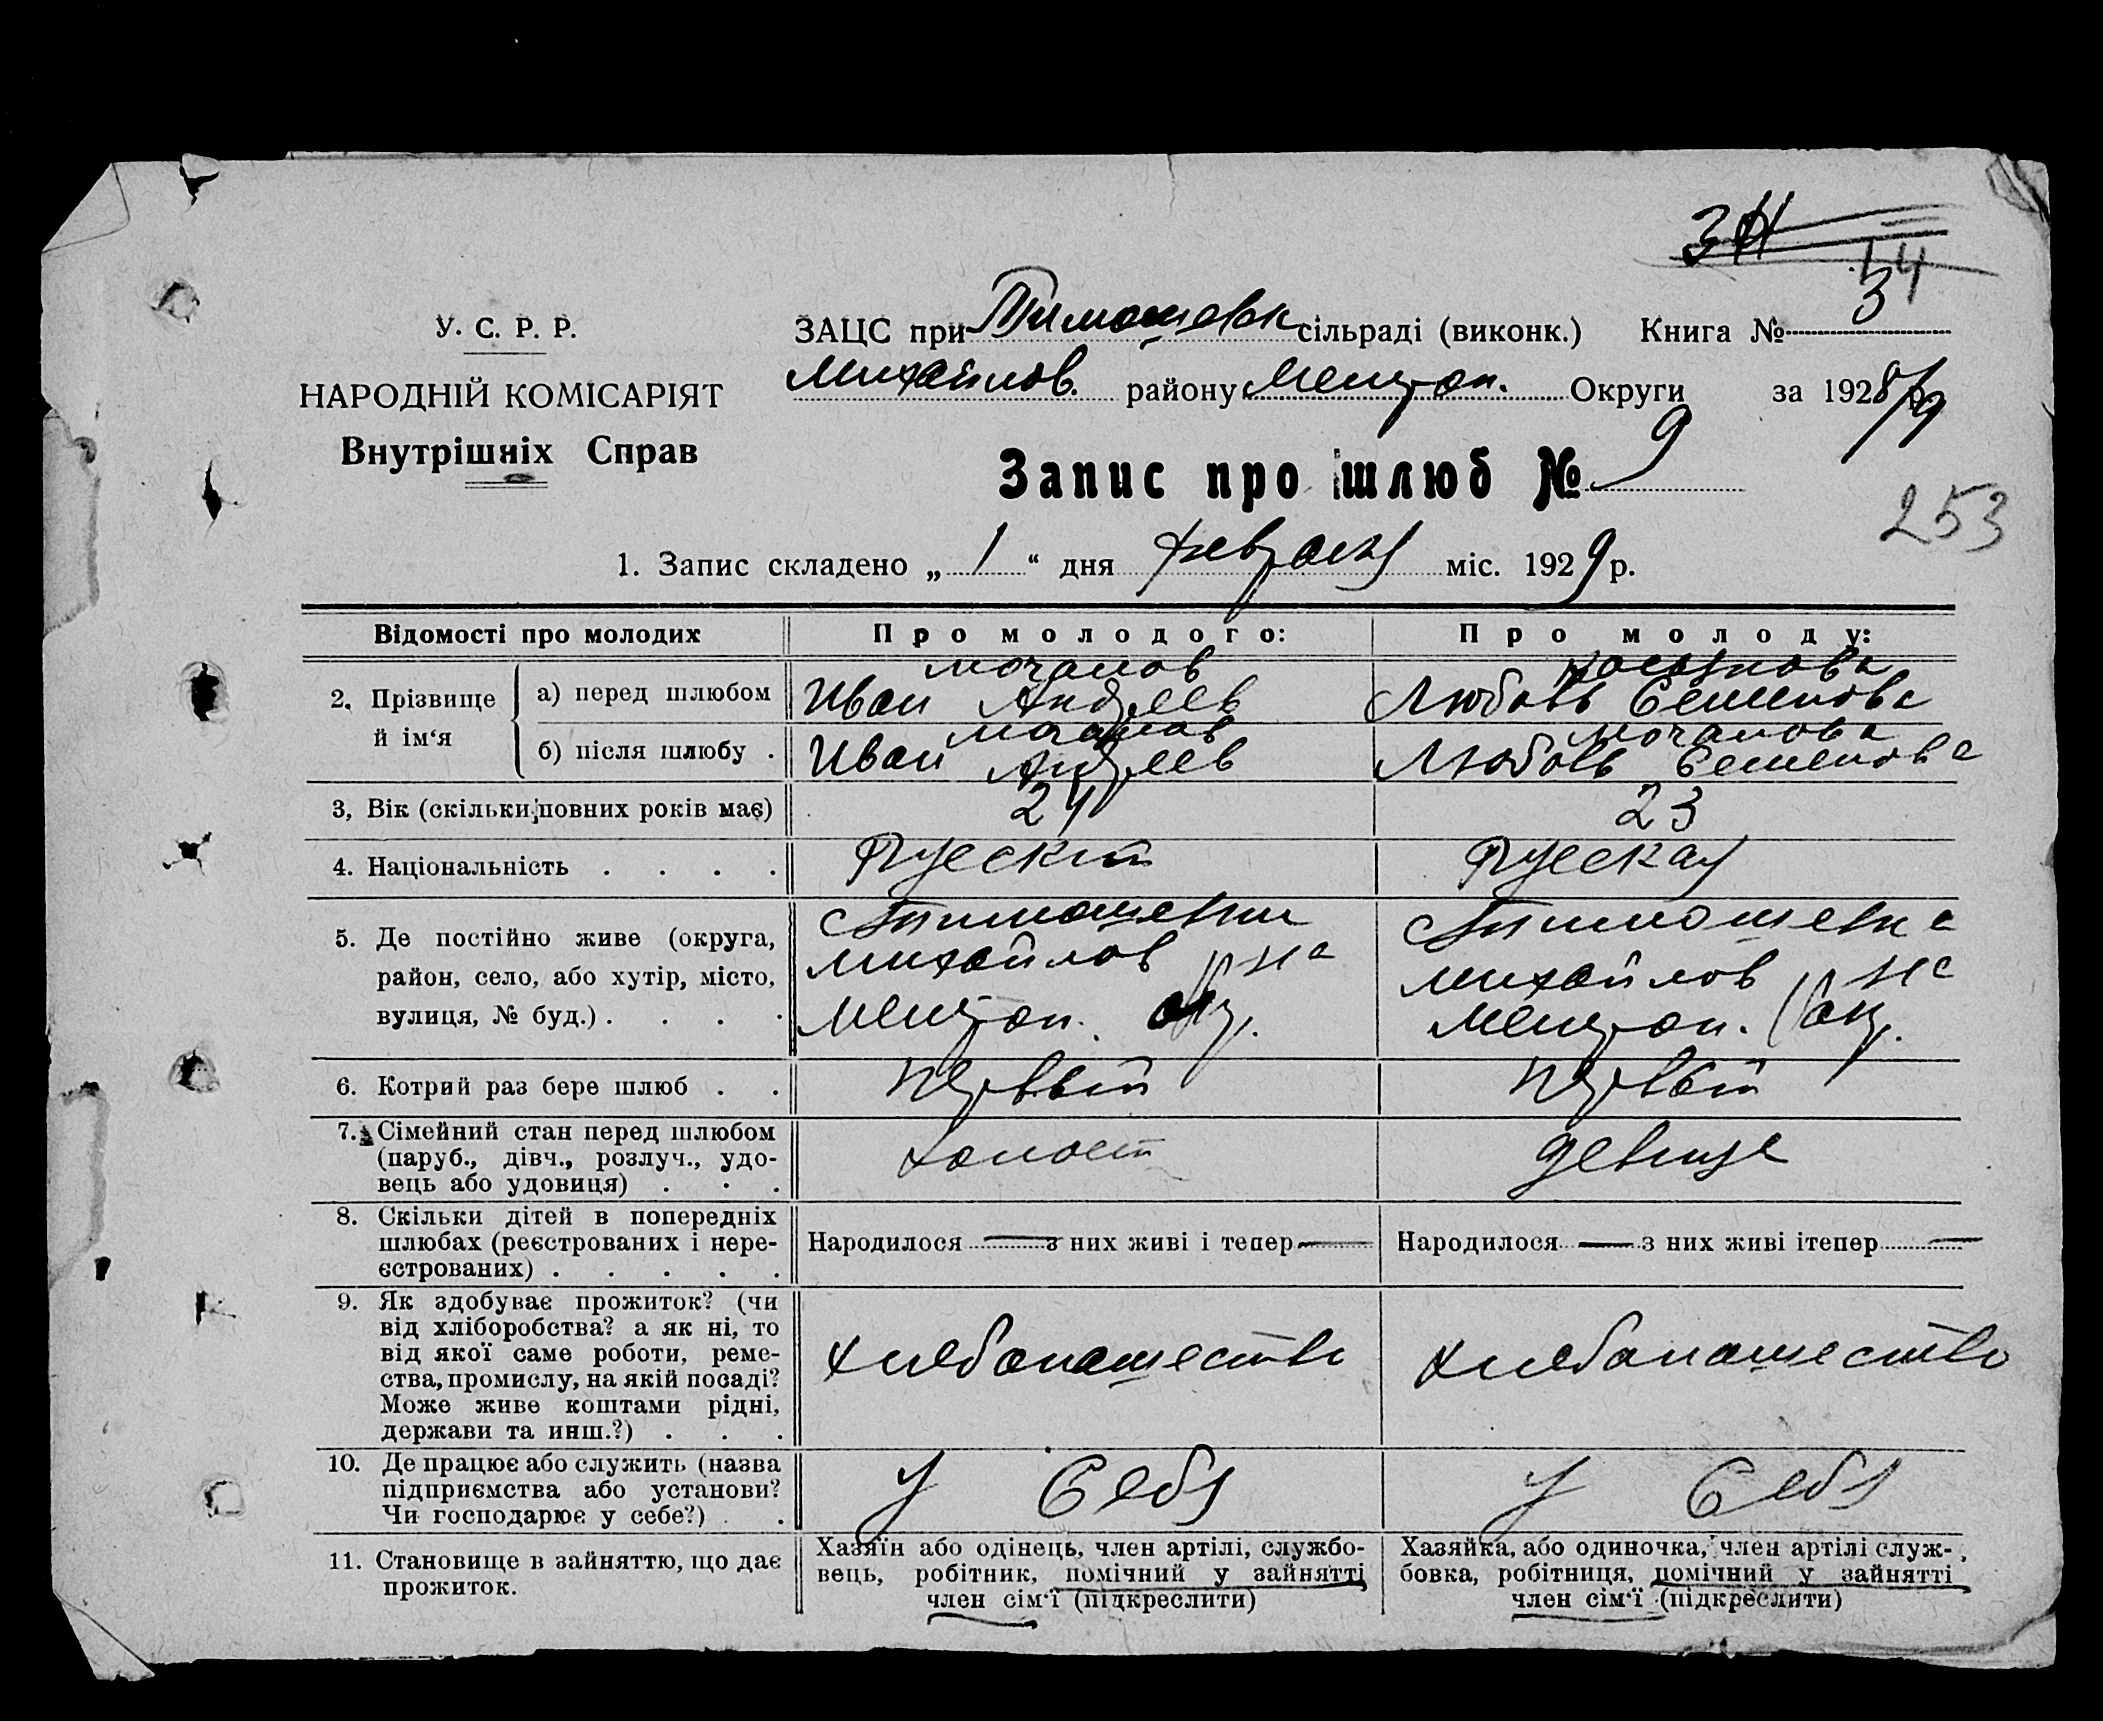 34
14
У. С. Р. Р.
ЗАЦС при Тимошевк сільраді (виконк.) Книга № 3
НАРОДНІЙ КОМІСАРІЯТ
Михайлов. району Мелитоп. Округи за 1928/9 р.
Внутрішніх Справ
Запис про шлюб № 9
253
1. Запис складено „ 1 “ дня февраля міс. 1929 р.
Відомості про молодих
Про молодого:
Про молоду:
2. Прізвище й ім‘я
а) перед шлюбом
Мочалов
Иван Андреев
Любовь Семенова
б) після шлюбу .
Мочалов
Иван Андреев
Мочалова
Любовь Семенова
3, Вік (скільки повних років має)
24
23
4. Національність . . . .
Русский
Русская
5. Де постійно живе (округа,
район, село, або хутір, місто,
вулиця, № буд.) . . . .
с Тимошевки
Михайлов р-на
Мелитоп. окр.
с Тимошевка
Михайлов р-на
Мелитоп. окр.
6. Котрий раз бере шлюб . .
первый
первый
7. Сімейний стан перед шлюбом
(паруб., дівч., розлуч., удо-
вець або удовиця) . . .
холост
девица
8. Скільки дітей в попередніх
шлюбах (реєстрованих і нере-
єстрованих) . . . . .
Народилося — з них живі і тепер —
Народилося — з них живі ітепер —
9. Як здобуває прожиток? (чи
від хліборобства? а як ні, то
від якої саме роботи, реме-
ства, промислу, на якій посаді?
Може живе коштами рідні,
держави та инш.?) . . .
хлебопашество
хлебопашество
10. Де працює або служить (назва
підприємства або установи?
Чи господарює у себе?) . .
у себя
у себя
11. Становище в зайняттю, що дає
прожиток.
Хазяїн або одінець, член артілі, службо-
вець, робітник, помічний у зайнятті
член сім‘ї (підкреслити)
Хазяйка, або одиночка, член артілі служ-
бовка, робітниця, помічний у зайнятті
член сім‘ї (підкреслити)